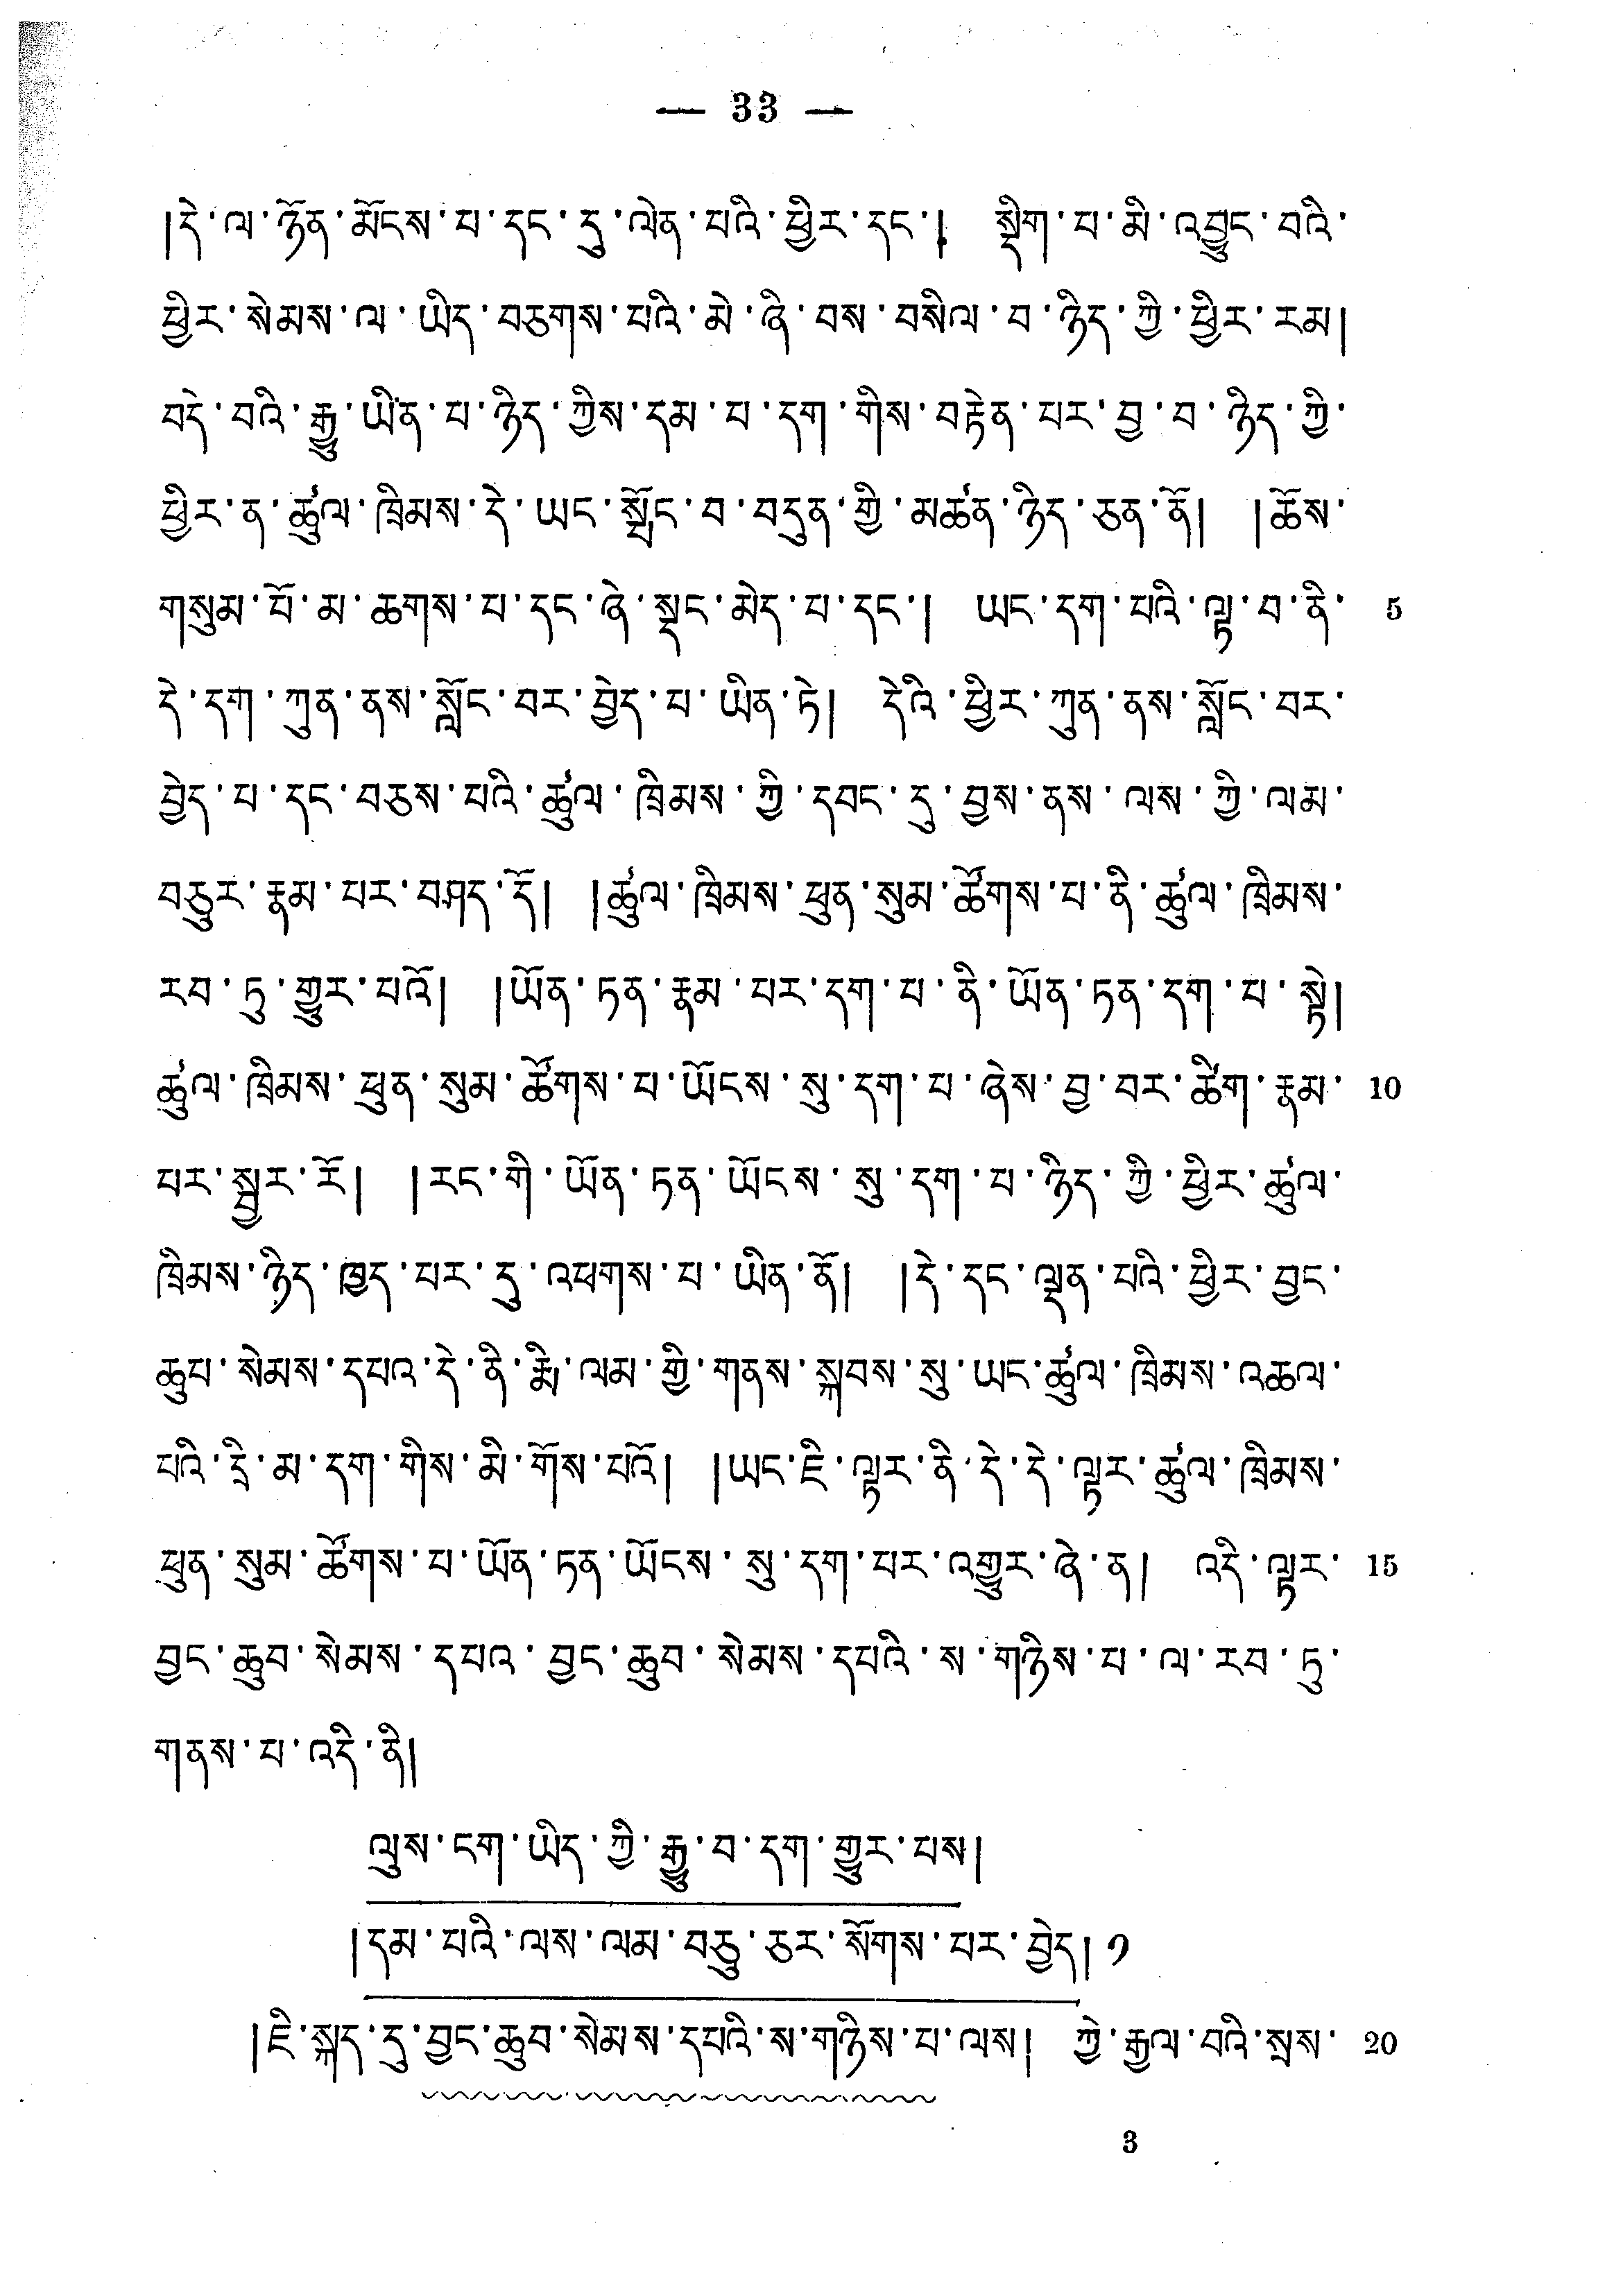 — 33 —
།དེ་ལ་ཉོན་མོངས་པ་དང་དུ་ལེན་པའི་ཕྱིར་དང་། སྡིག་པ་མི་འབྱུང་བའི་
ཕྱིར་སེམས་ལ་ཡིད་བཅགས་པའི་མེ་ཞི་བས་བསིལ་བ་ཉིད་ཀྱི་ཕྱིར་རམ།
བདེ་བའི་རྒྱུ་ཡིན་པ་ཉིད་ཀྱིས་དམ་པ་དག་གིས་བརྟེན་པར་བྱ་བ་ཉིད་ཀྱི་
ཕྱིར་ན་ཚུལ་ཁྲིམས་དེ་ཡང་སྤོང་བ་བདུན་གྱི་མཚན་ཉིད་ཅན་ནོ། །ཆོས་
གསུམ་པོ་མ་ཆགས་པ་དང་ཞེ་སྡང་མེད་པ་དང་། ཡང་དག་པའི་ལྟ་བ་ནི་ 5
དེ་དག་ཀུན་ནས་སློང་བར་བྱེད་པ་ཡིན་ཏེ། དེའི་ཕྱིར་ཀུན་ནས་སློང་བར་
བྱེད་པ་དང་བཅས་པའི་ཚུལ་ཁྲིམས་ཀྱི་དབང་དུ་བྱས་ནས་ལས་ཀྱི་ལམ་
བཅུར་རྣམ་པར་བཤད་དོ། །ཚུལ་ཁྲིམས་ཕུན་སུམ་ཚོགས་པ་ནི་ཚུལ་ཁྲིམས་
རབ་ཏུ་གྱུར་པའོ། །ཡོན་ཏན་རྣམ་པར་དག་པ་ནི་ཡོན་ཏན་དག་པ་སྟེ།
ཚུལ་ཁྲིམས་ཕུན་སུམ་ཚོགས་པ་ཡོངས་སུ་དག་པ་ཞེས་བྱ་བར་ཚིག་རྣམ་ 10
པར་སྦྱར་རོ། །རང་གི་ཡོན་ཏན་ཡོངས་སུ་དག་པ་ཉིད་ཀྱི་ཕྱིར་ཚུལ་
ཁྲིམས་ཉིད་ཁྱད་པར་དུ་འཕགས་པ་ཡིན་ནོ། །དེ་དང་ལྡན་པའི་ཕྱིར་བྱང་
ཆུབ་སེམས་དཔའ་དེ་ནི་རྨི་ལམ་གྱི་གནས་སྐབས་སུ་ཡང་ཚུལ་ཁྲིམས་འཆལ་
པའི་དྲི་མ་དག་གིས་མི་གོས་པའོ། །ཡང་ཇི་ལྟར་ནི་དེ་དེ་ལྟར་ཚུལ་ཁྲིམས་
ཕུན་སུམ་ཚོགས་པ་ཡོན་ཏན་ཡོངས་སུ་དག་པར་འགྱུར་ཞེ་ན། འདི་ལྟར་ 15
བྱང་ཆུབ་སེམས་དཔའ་བྱང་ཆུབ་སེམས་དཔའི་ས་གཉིས་པ་ལ་རབ་ཏུ་
གནས་པ་འདི་ནི།
ལུས་ངག་ཡིད་ཀྱི་རྒྱུ་བ་དག་གྱུར་པས།
།དམ་པའི་ལས་ལམ་བཅུ་ཅར་སོགས་པར་བྱེད། ༡
།ཇི་སྐད་དུ་བྱང་ཆུབ་སེམས་དཔའི་ས་གཉིས་པ་ལས། ཀྱེ་རྒྱལ་བའི་སྲས་ 20
3